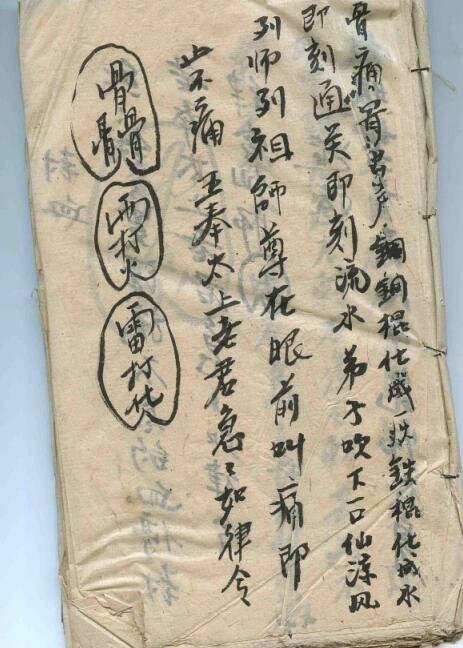 骨痛 銅棍化成一跌鉄棍化成水
即刻通关即刻流水弟子吹下一口仙凉风
列师列祖師尊在眼前叫痛即
止不痛 奉太上老君急〻如律令
骨骨骨
雨打火
雷打化